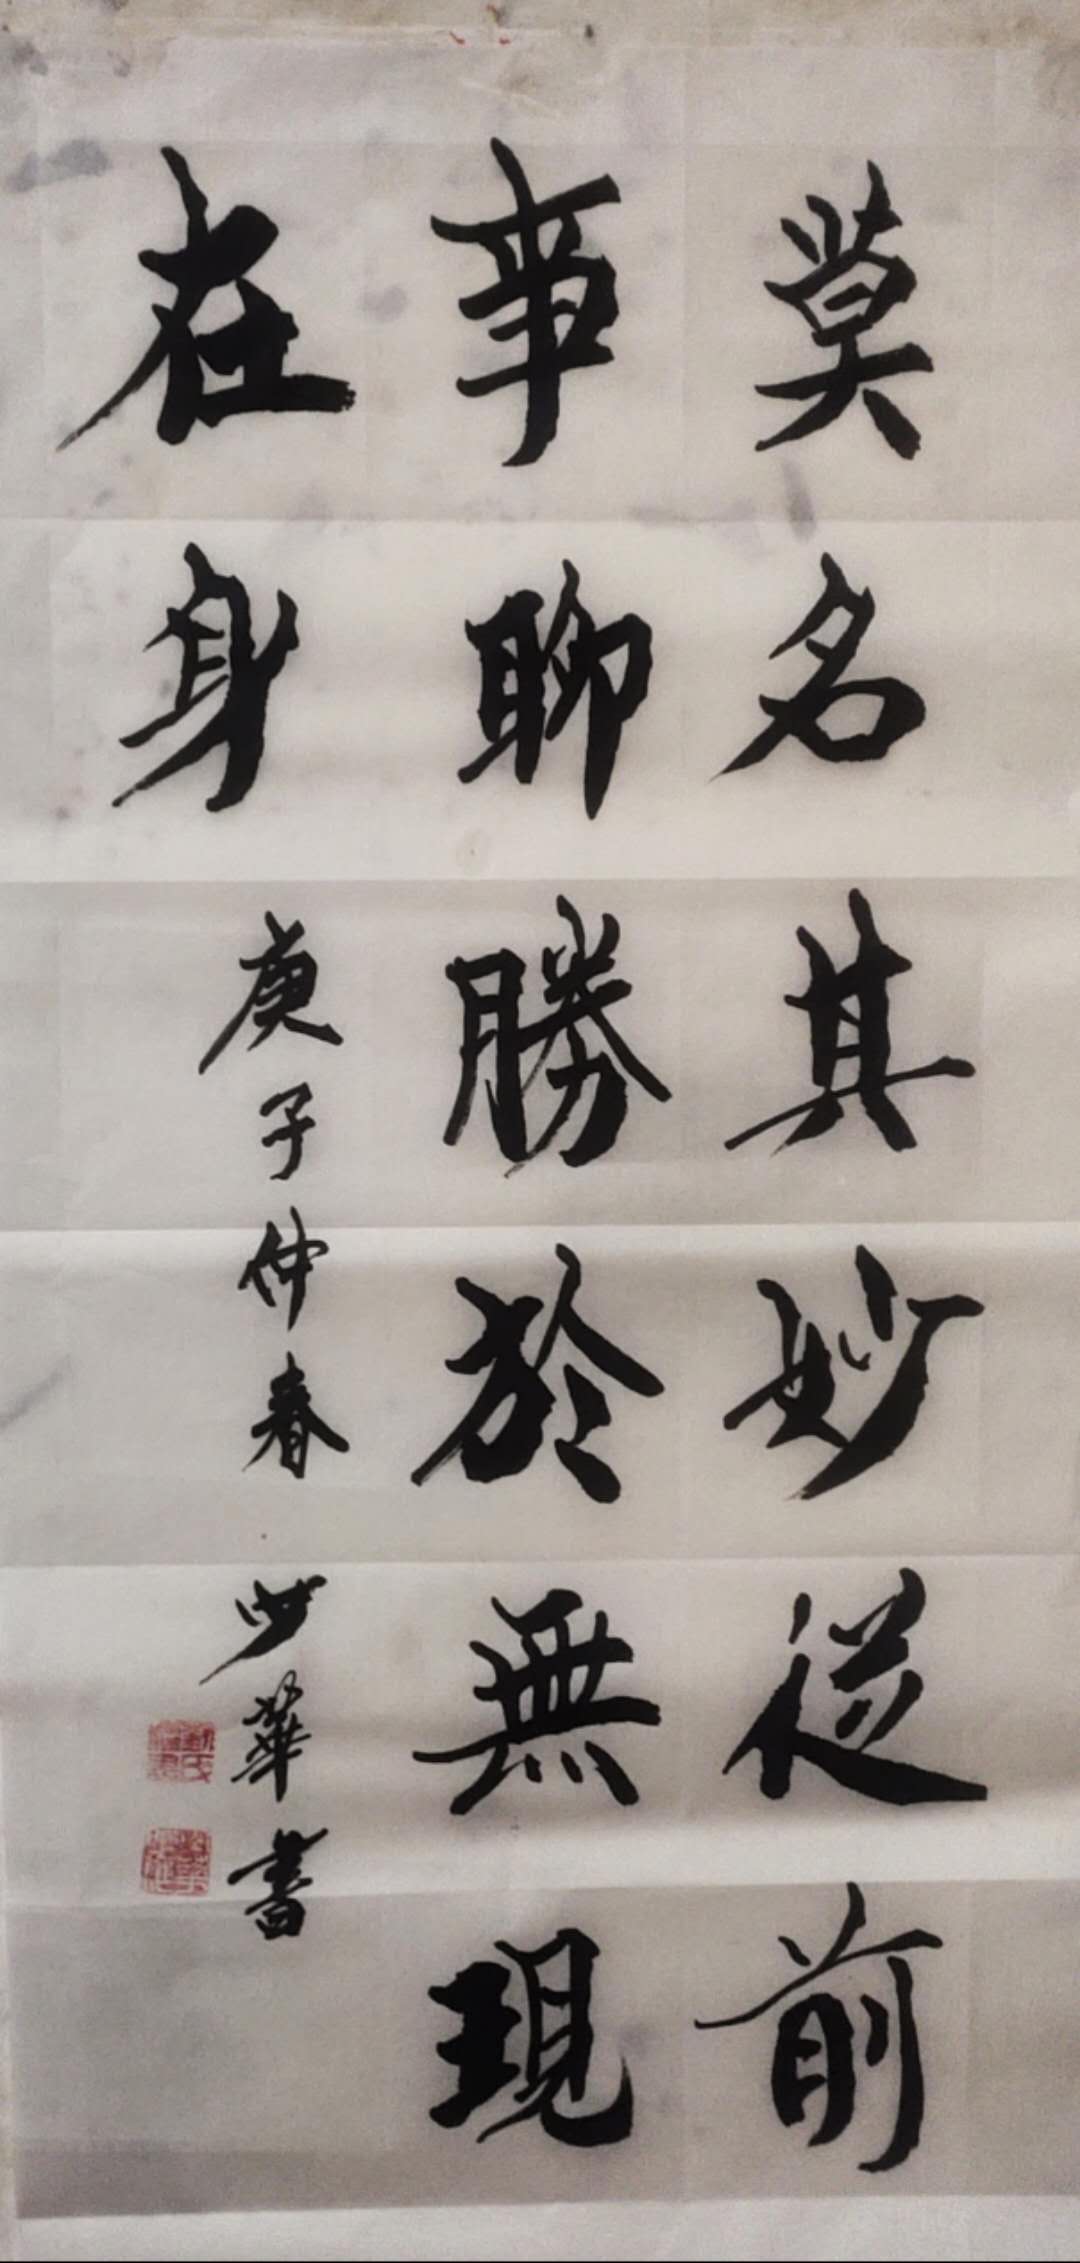 莫名其妙從前
事聊勝於無現
在身
庚子仲春
少華書